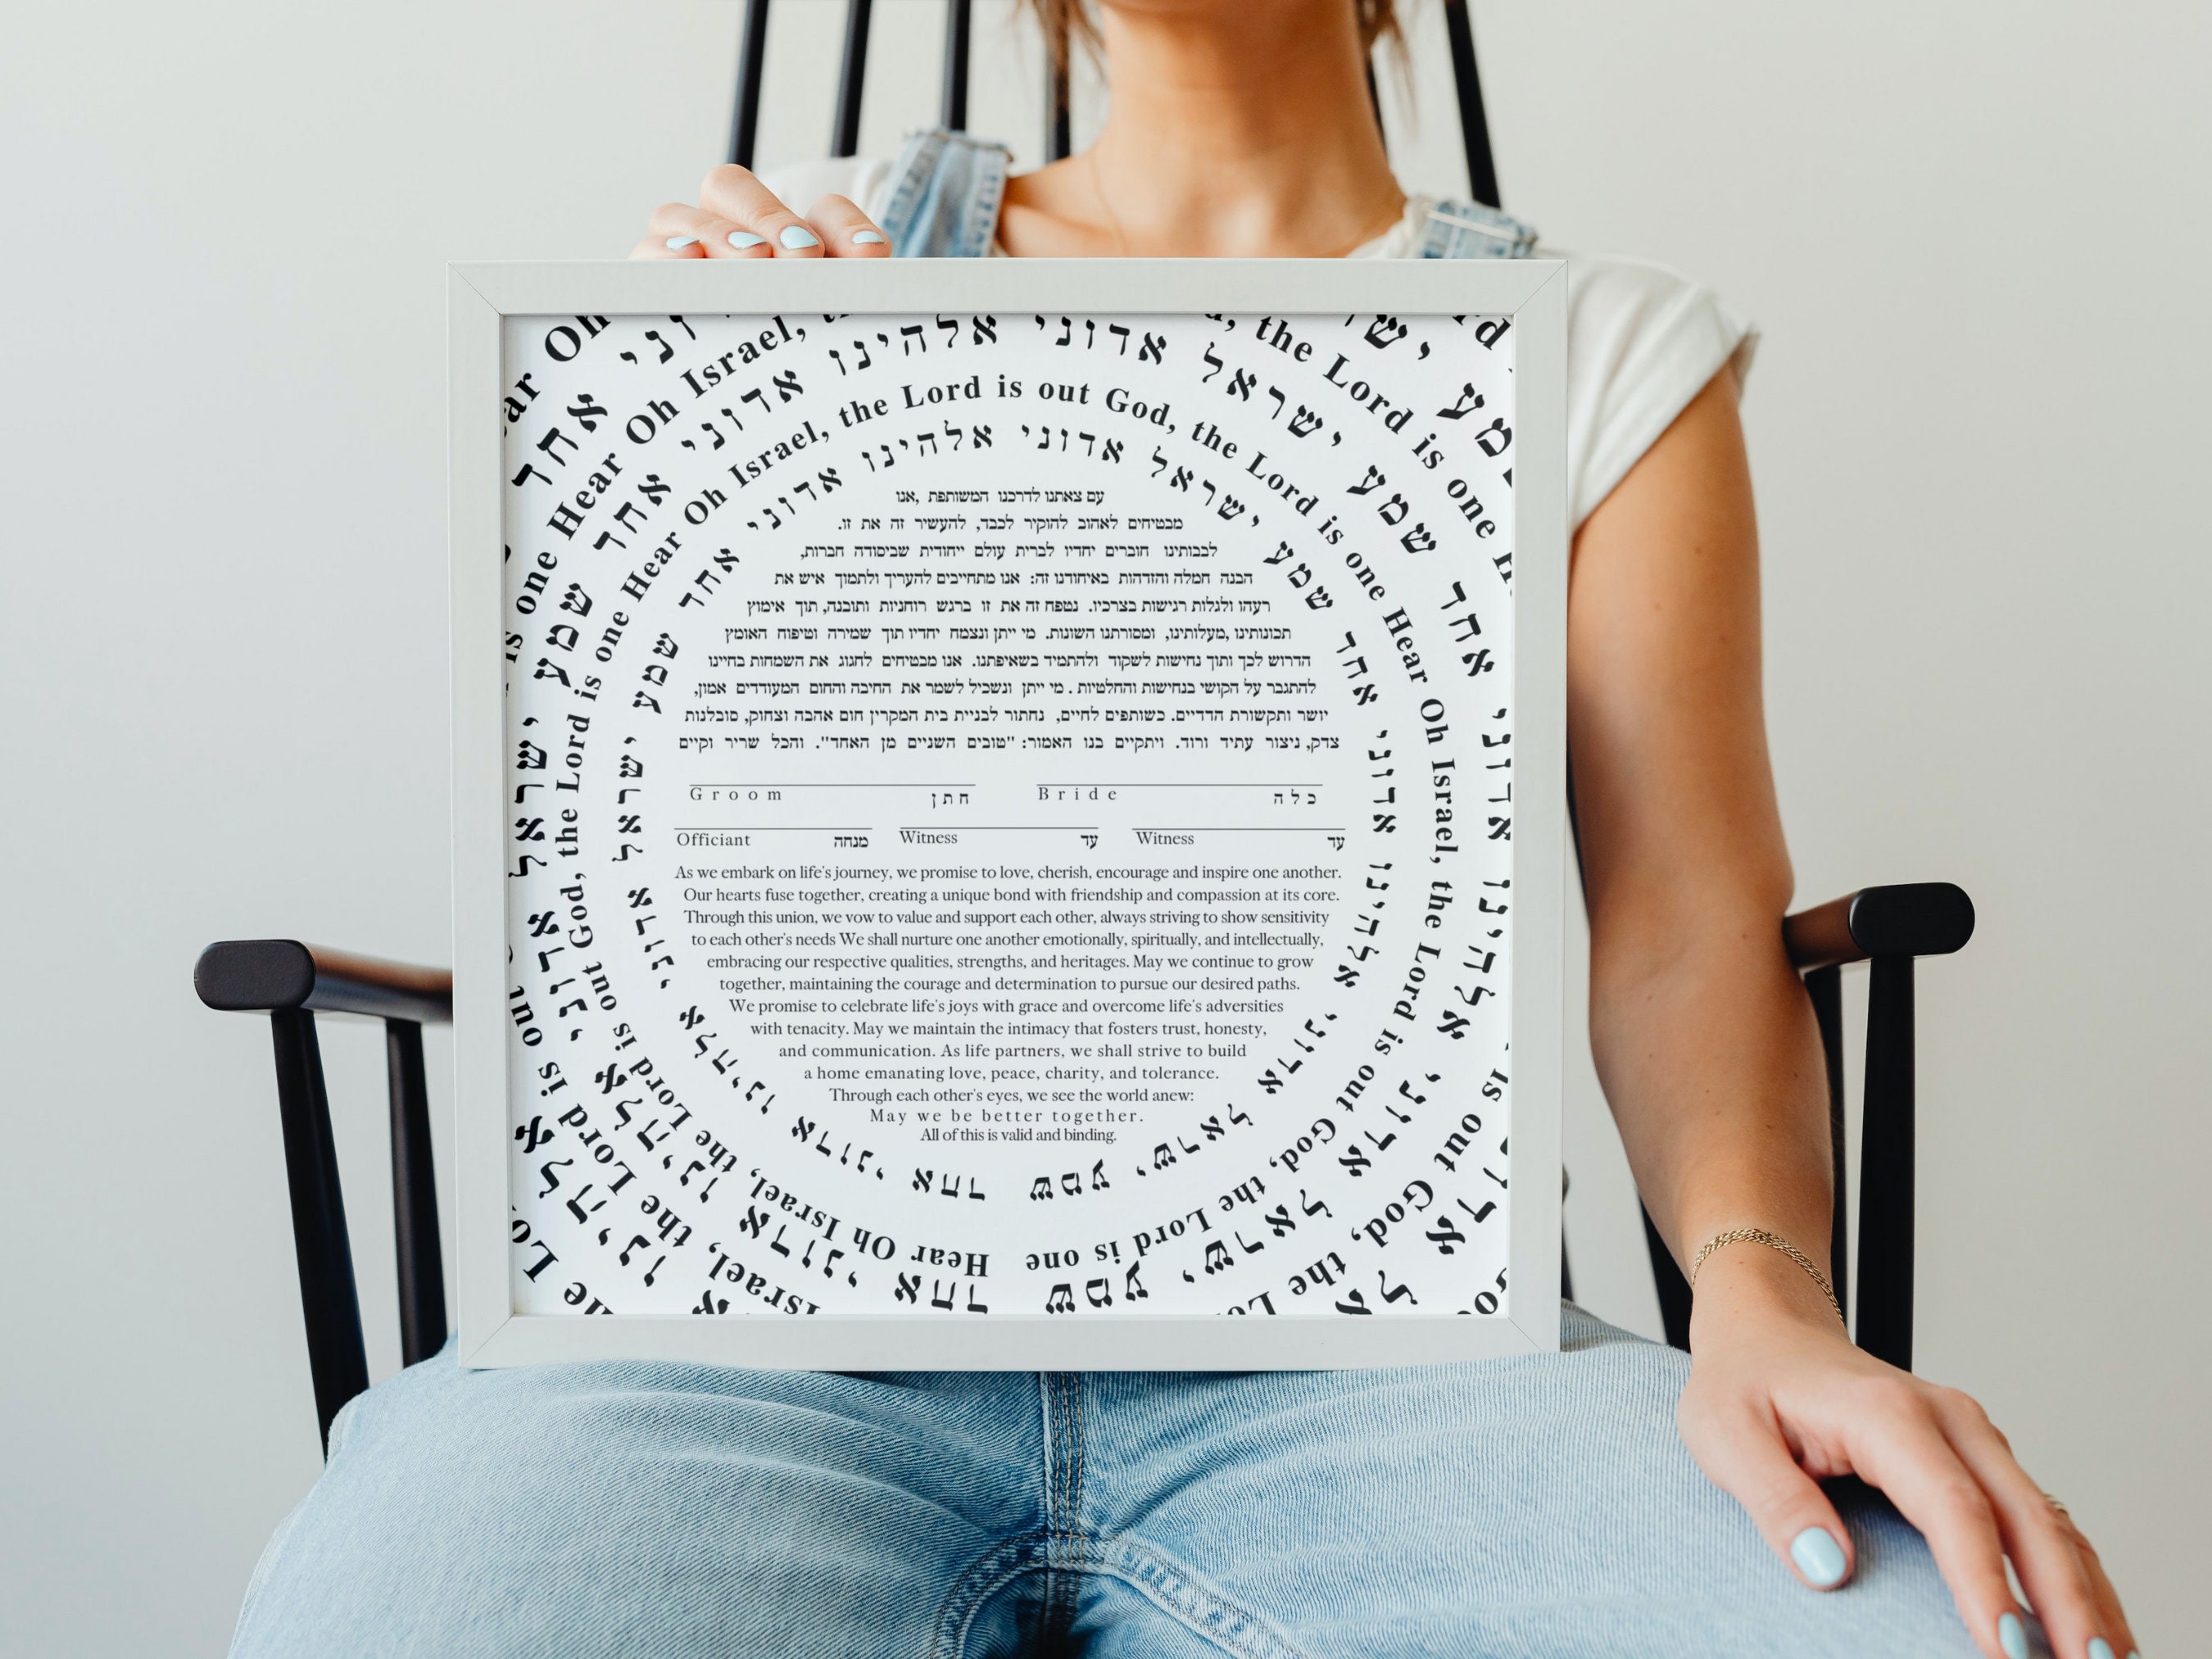 Hear Oh Israel, the Lord is out God, the Lord is one
שמע ישראל אדוני אלהינו אדוני אחד
Hear Oh Israel, the Lord is out God, the Lord is one Hear Oh Israel, the Lord is out God, the Lord is one
שמע ישראל, אדוני אלהינו אדוני אחד שמע ישראל אדוני אלהינו, אדוני אחד
עם צאתנו לדרכנו המשותפת ,אנו
מבטיחים לאהוב להוקיר לכבד, להעשיר זה את זו.
לבבותינו חוברים יחדיו לברית עולם ייחודית שביסודה חברות,
הבנה חמלה והזדהות באיחודנו זה: אנו מתחייבים להעריך ולתמוך איש את
רעהו ולגלות רגישות בצרכיו. נטפח זה את זו ברגש רוחניות ותובנה, תוך אימוץ
תכונותינו ,מעלותינו, ומסורתנו השונות. מי ייתן ונצמח יחדיו תוך שמירה וטיפוח האומץ
הדרוש לכך ותוך נחישות לשקוד ולהתמיד בשאיפתנו. אנו מבטיחים לחגוג את השמחות בחיינו
להתגבר על הקושי בנחישות והחלטיות . מי ייתן ונשכיל לשמר את החיבה והחום המעודדים אמון,
יושר ותקשורת הדדיים. כשותפים לחיים, נחתור לבניית בית המקרין חום אהבה וצחוק, סובלנות
צדק, ניצור עתיד ורוד. ויתקיים בנו האמור: "טובים השניים מן האחד". והכל שריר וקיים
Groom חתן Bride כלה
Officiant מנחה Witness עד Witness עד
As we embark on life's journey, we promise to love, cherish, encourage and inspire one another.
Our hearts fuse together, creating a unique bond with friendship and compassion at its core.
Through this union, we vow to value and support each other, always striving to show sensitivity
to each other's needs We shall nurture one another emotionally, spiritually, and intellectually,
embracing our respective qualities, strengths, and heritages. May we continue to grow
together, maintaining the courage and determination to pursue our desired paths.
We promise to celebrate life's joys with grace and overcome life's adversities
with tenacity. May we maintain the intimacy that fosters trust, honesty,
and communication. As life partners, we shall strive to build
a home emanating love, peace, charity, and tolerance.
Through each other's eyes, we see the world anew:
May we be better together.
All of this is valid and binding.